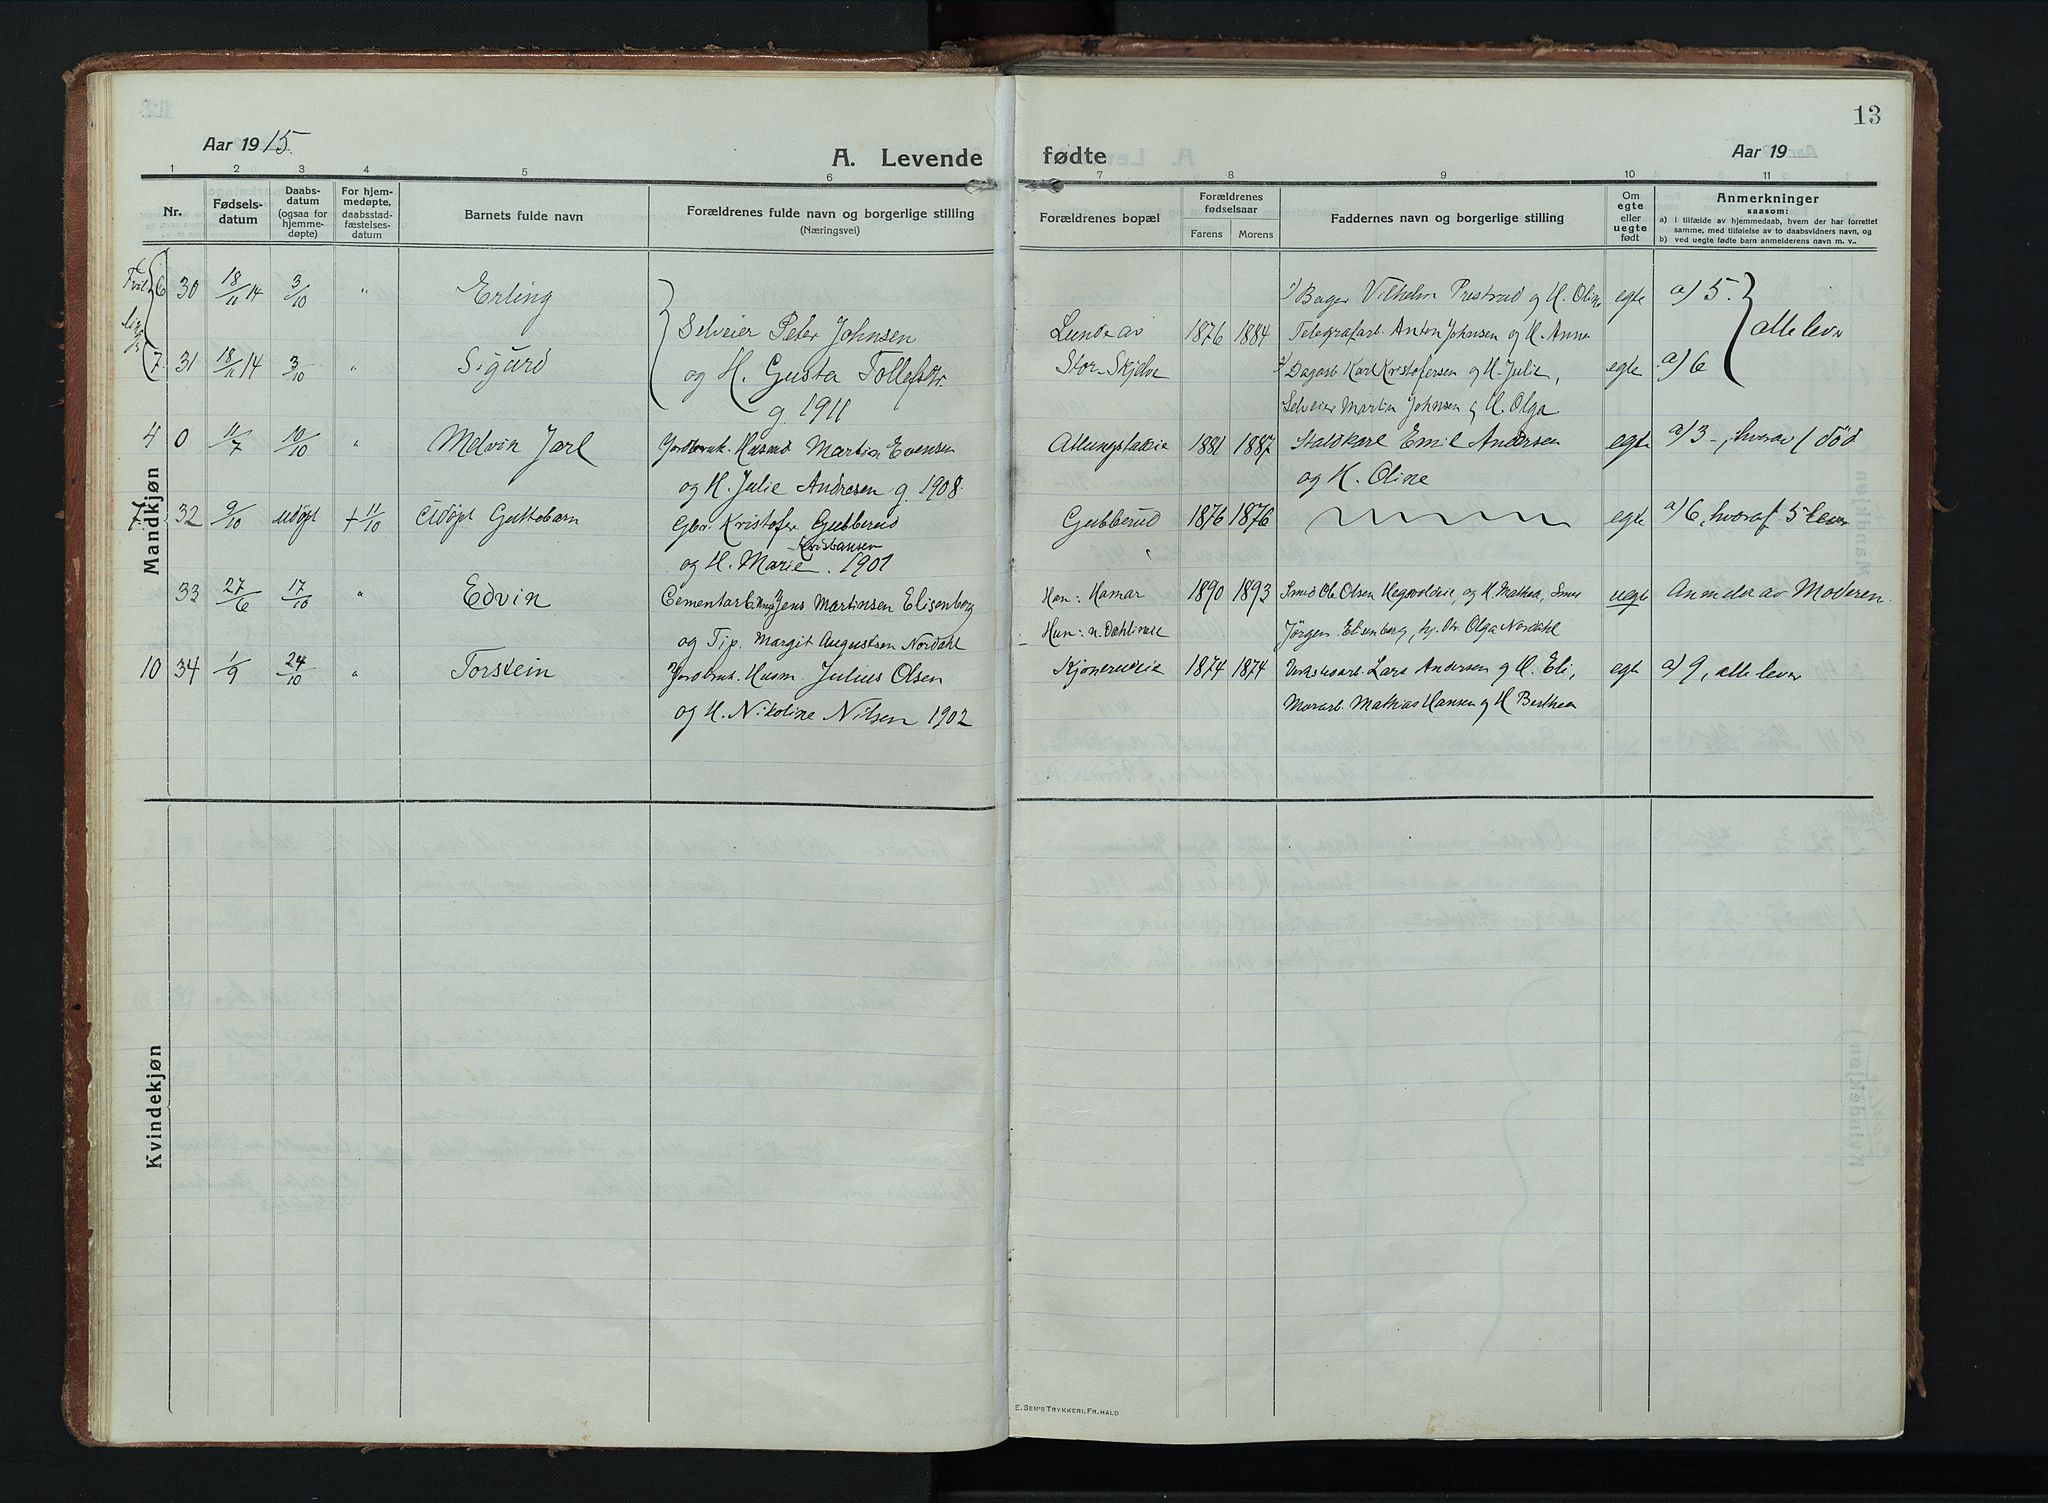 13
Aar 1915.
A. Levende
fødte
Aar 19
1 2 3 4 5 6 7 8 9 10 11
Nr.
Fødsels-
datum
Daabs-
datum
(ogsaa for
hjemme-
døpte)
For hjem-
medøpte,
daabsstad-
fæstelses-
datum
Barnets fulde navn
Forældrenes fulde navn og borgerlige stilling
(Næringsvei)
Forældrenes bopæl
Forældrenes
fødselsaar
Farens Morens
Faddernes navn og borgerlige stilling
Om
egte
eller
uegte
født
Anmerkninger
saasom:
a) i tilfælde av hjemmedaab, hvem der har forrettet
samme, med tilføielse av to daabsvidners navn, og
b) ved uegte fødte barn anmelderens navn m. v..
Mandkjøn
6 30 18/11 14 3/10 " Erling
1) Bager Vilhelm Prestrud og H. Oline egte a) 5.
Selveier Peter Johnsen Lunde av 1876 1884 Telegrafarb. Anton Johnsen og H. Anna alle lever
7 31 18/11 14 3/10 " Sigurd og H. Gusta Tollefsdtr. Stor-Skjelve 2) Dagarb. Karl Kristofersen og H. Julie, egte a) 6
g. 1911 Selveier Martin Johnsen og H. Olga
4 0 11/7 10/10 " Melvin Jarl Jordbruk. Husmd Martin Evensen 1881 1887 Staldkarl Emil Andersen egte a) 3 -, hvorav 1 død
og H. Julie Andresen g. 1908. og H. Oline
7 32 9/10 udøpt + 11/10 Udøpt Guttebarn Gbr. Kristofer Gubberud Gubberud 1876 1876 egte a) 6, hvoraf 5 lever
Kristiansen
og H. Marie. 1901
33 27/6 17/10 " Edvin Cementarb. Ungk. Jens Martinsen Elisenberg Han: Hamar 1890 1893 Smed Ole Olsen og H. Mathea, Smed uegte Anmeldt av Moderen.
og Tjp. Margit Augustsen Nordahl Hun: n. Dahlineie Jörgen Elisenberg, Olga Nordahl
10 34 1/9 24/10 " Torstein Jordbruk. Husm. Julius Olsen Kjonerudeie 1874 1874 Verkstedarb. Lars Andersen og H. Eli, egte a) 9, alle lever
og H. Nikoline Nilsen 1902 Murarb. Mathias Hansen og H Berthea
Kvindekjøn
E. SEM'S TRYKKERI, FR. HALD